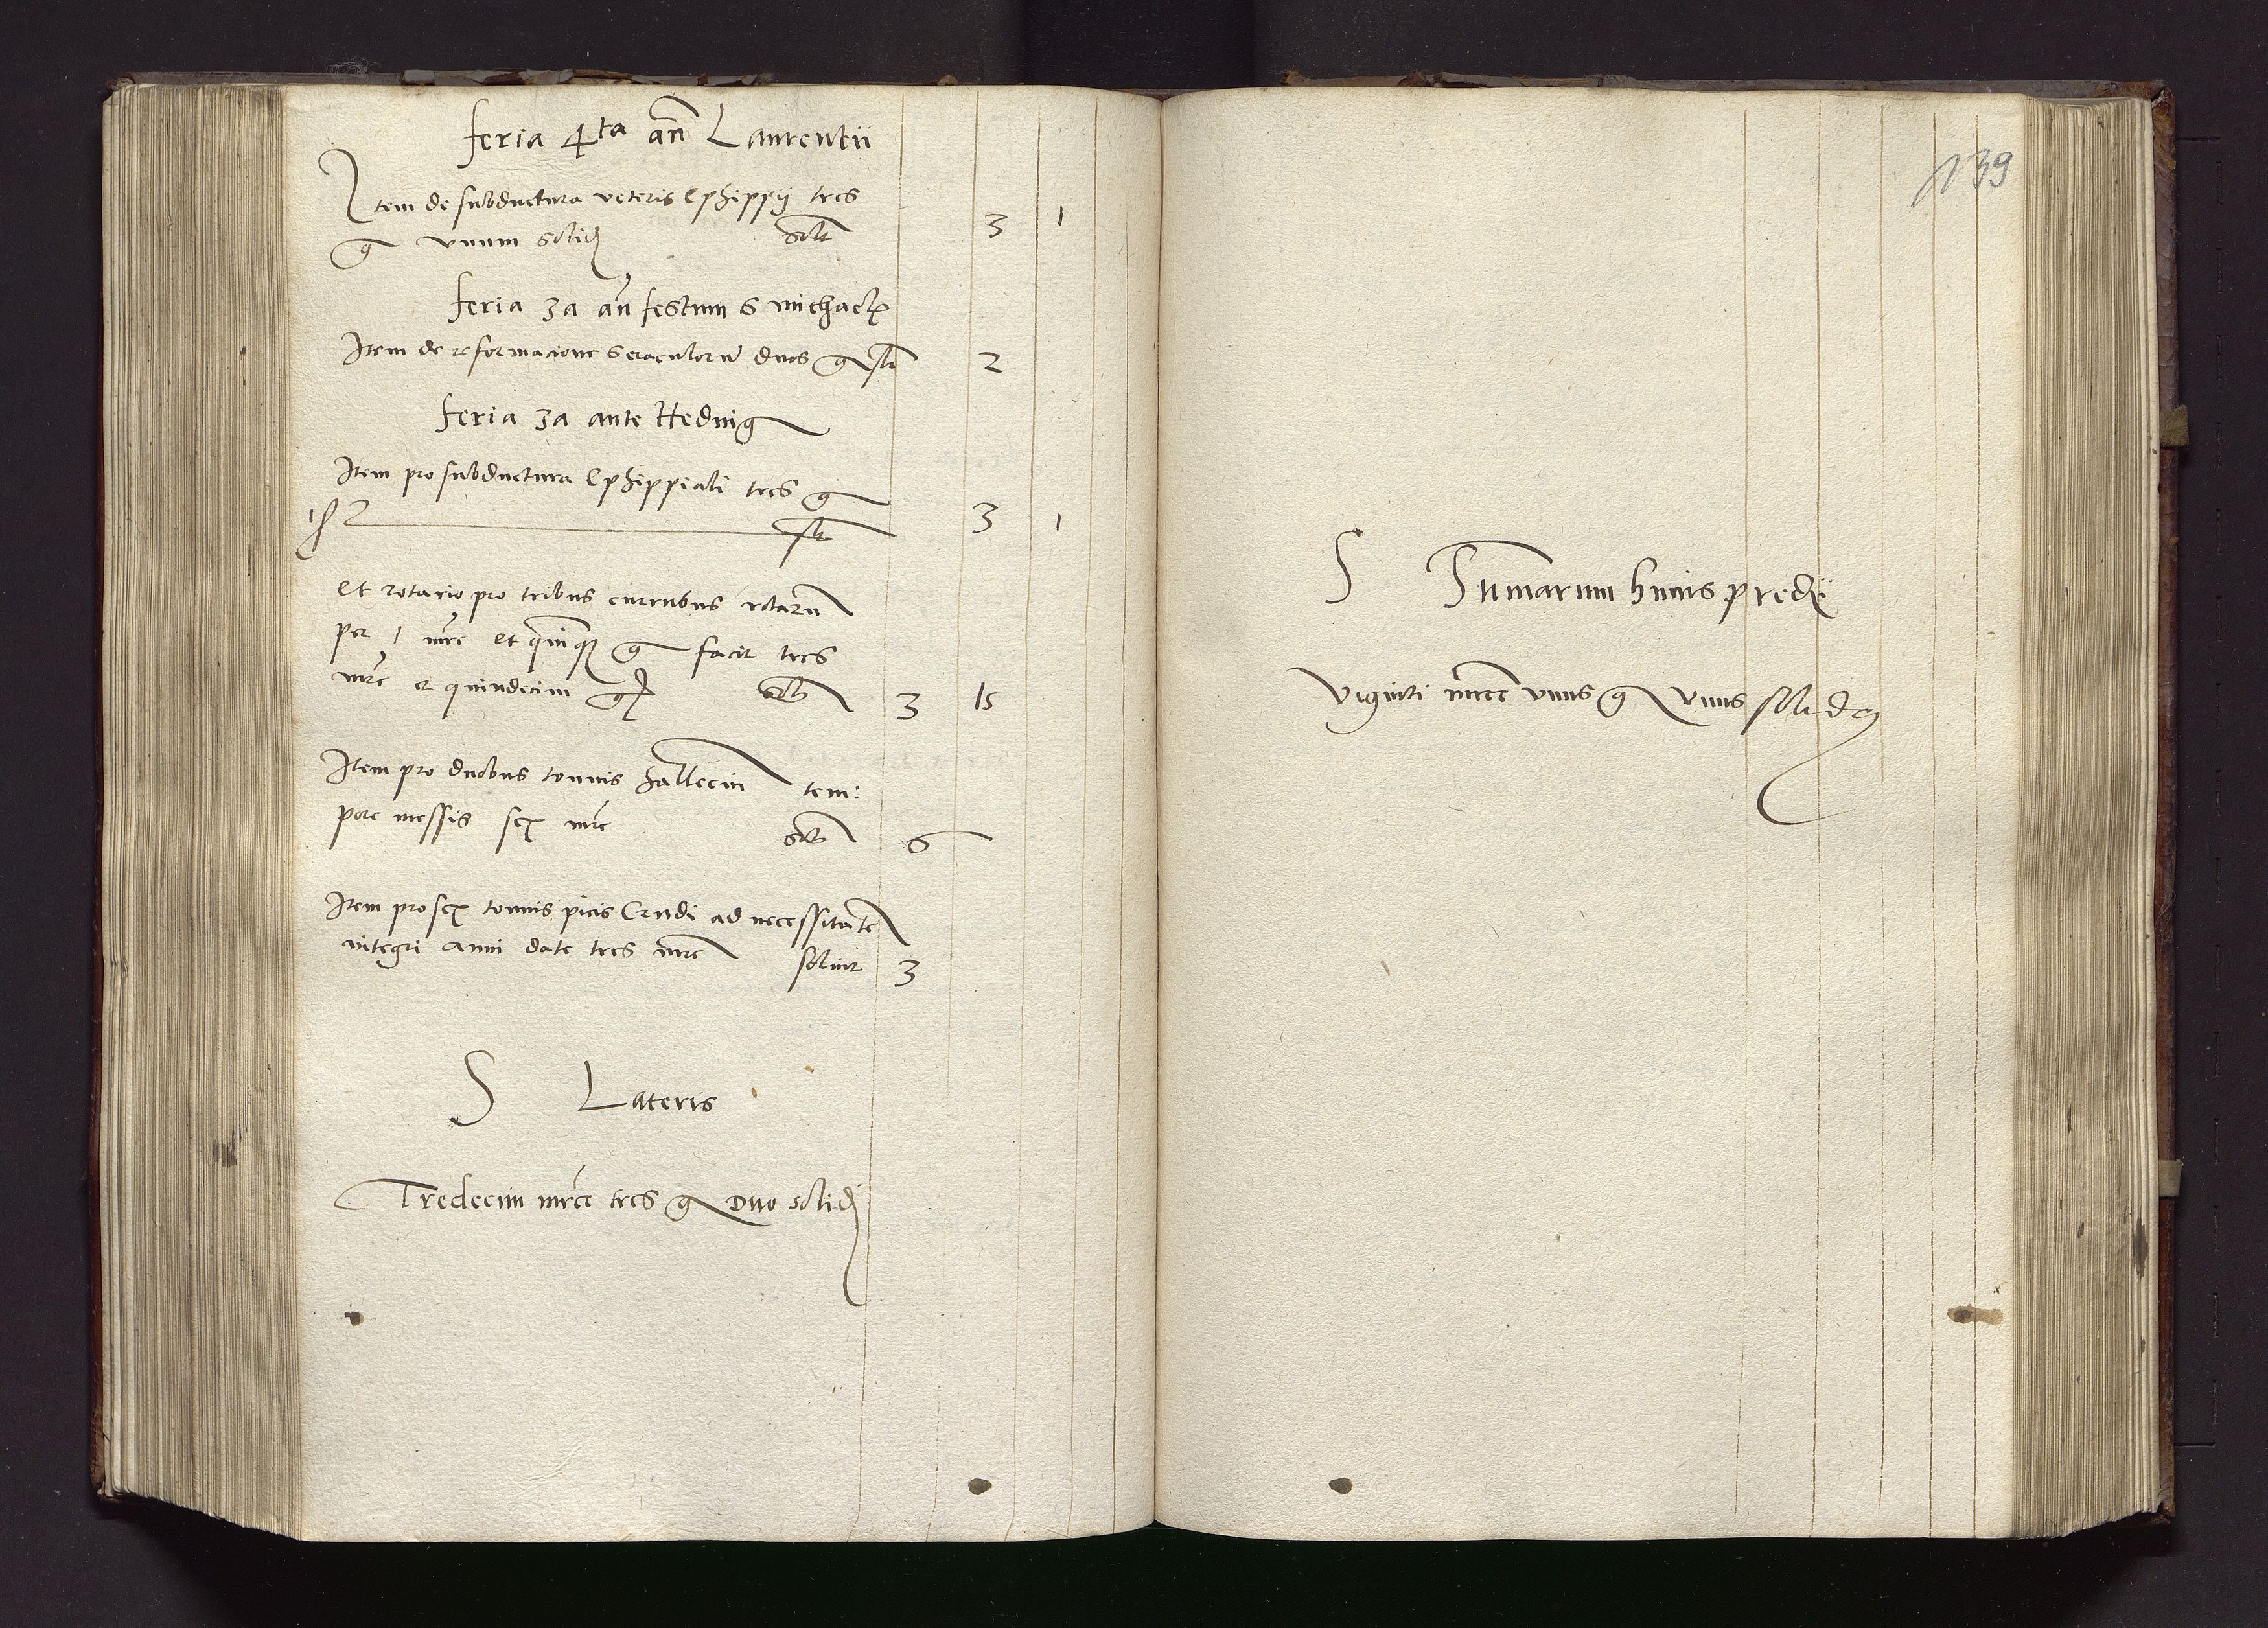 feria 4ta an̄ Laurentii
Item de subductura veteris Ephippij tres
g unum solid solt 3 1
feria 3a an̄ festum S michael
Item de reformacione Seraculoru duos g slt 2
feria 3a ante Hedvig
Item pro subductura Ephippiali tres g
1 slt 3 1
Et rotario pro tribus curribus rotaru
per 1 mrc et quinq g facit tres
mrc et quindecim g solt 3 15
Item pro duobus tonnis hallecin tem:
pore messis sex mrc solt 6
Item pro sex tonnis picis Crudi ad necessitate
integri anni date tres mrc solvit 3
S Lateris
Tredecim mrce tres g Duo solid
139
S Sumarum huius predii
Viginti mrce unus g unus solidus